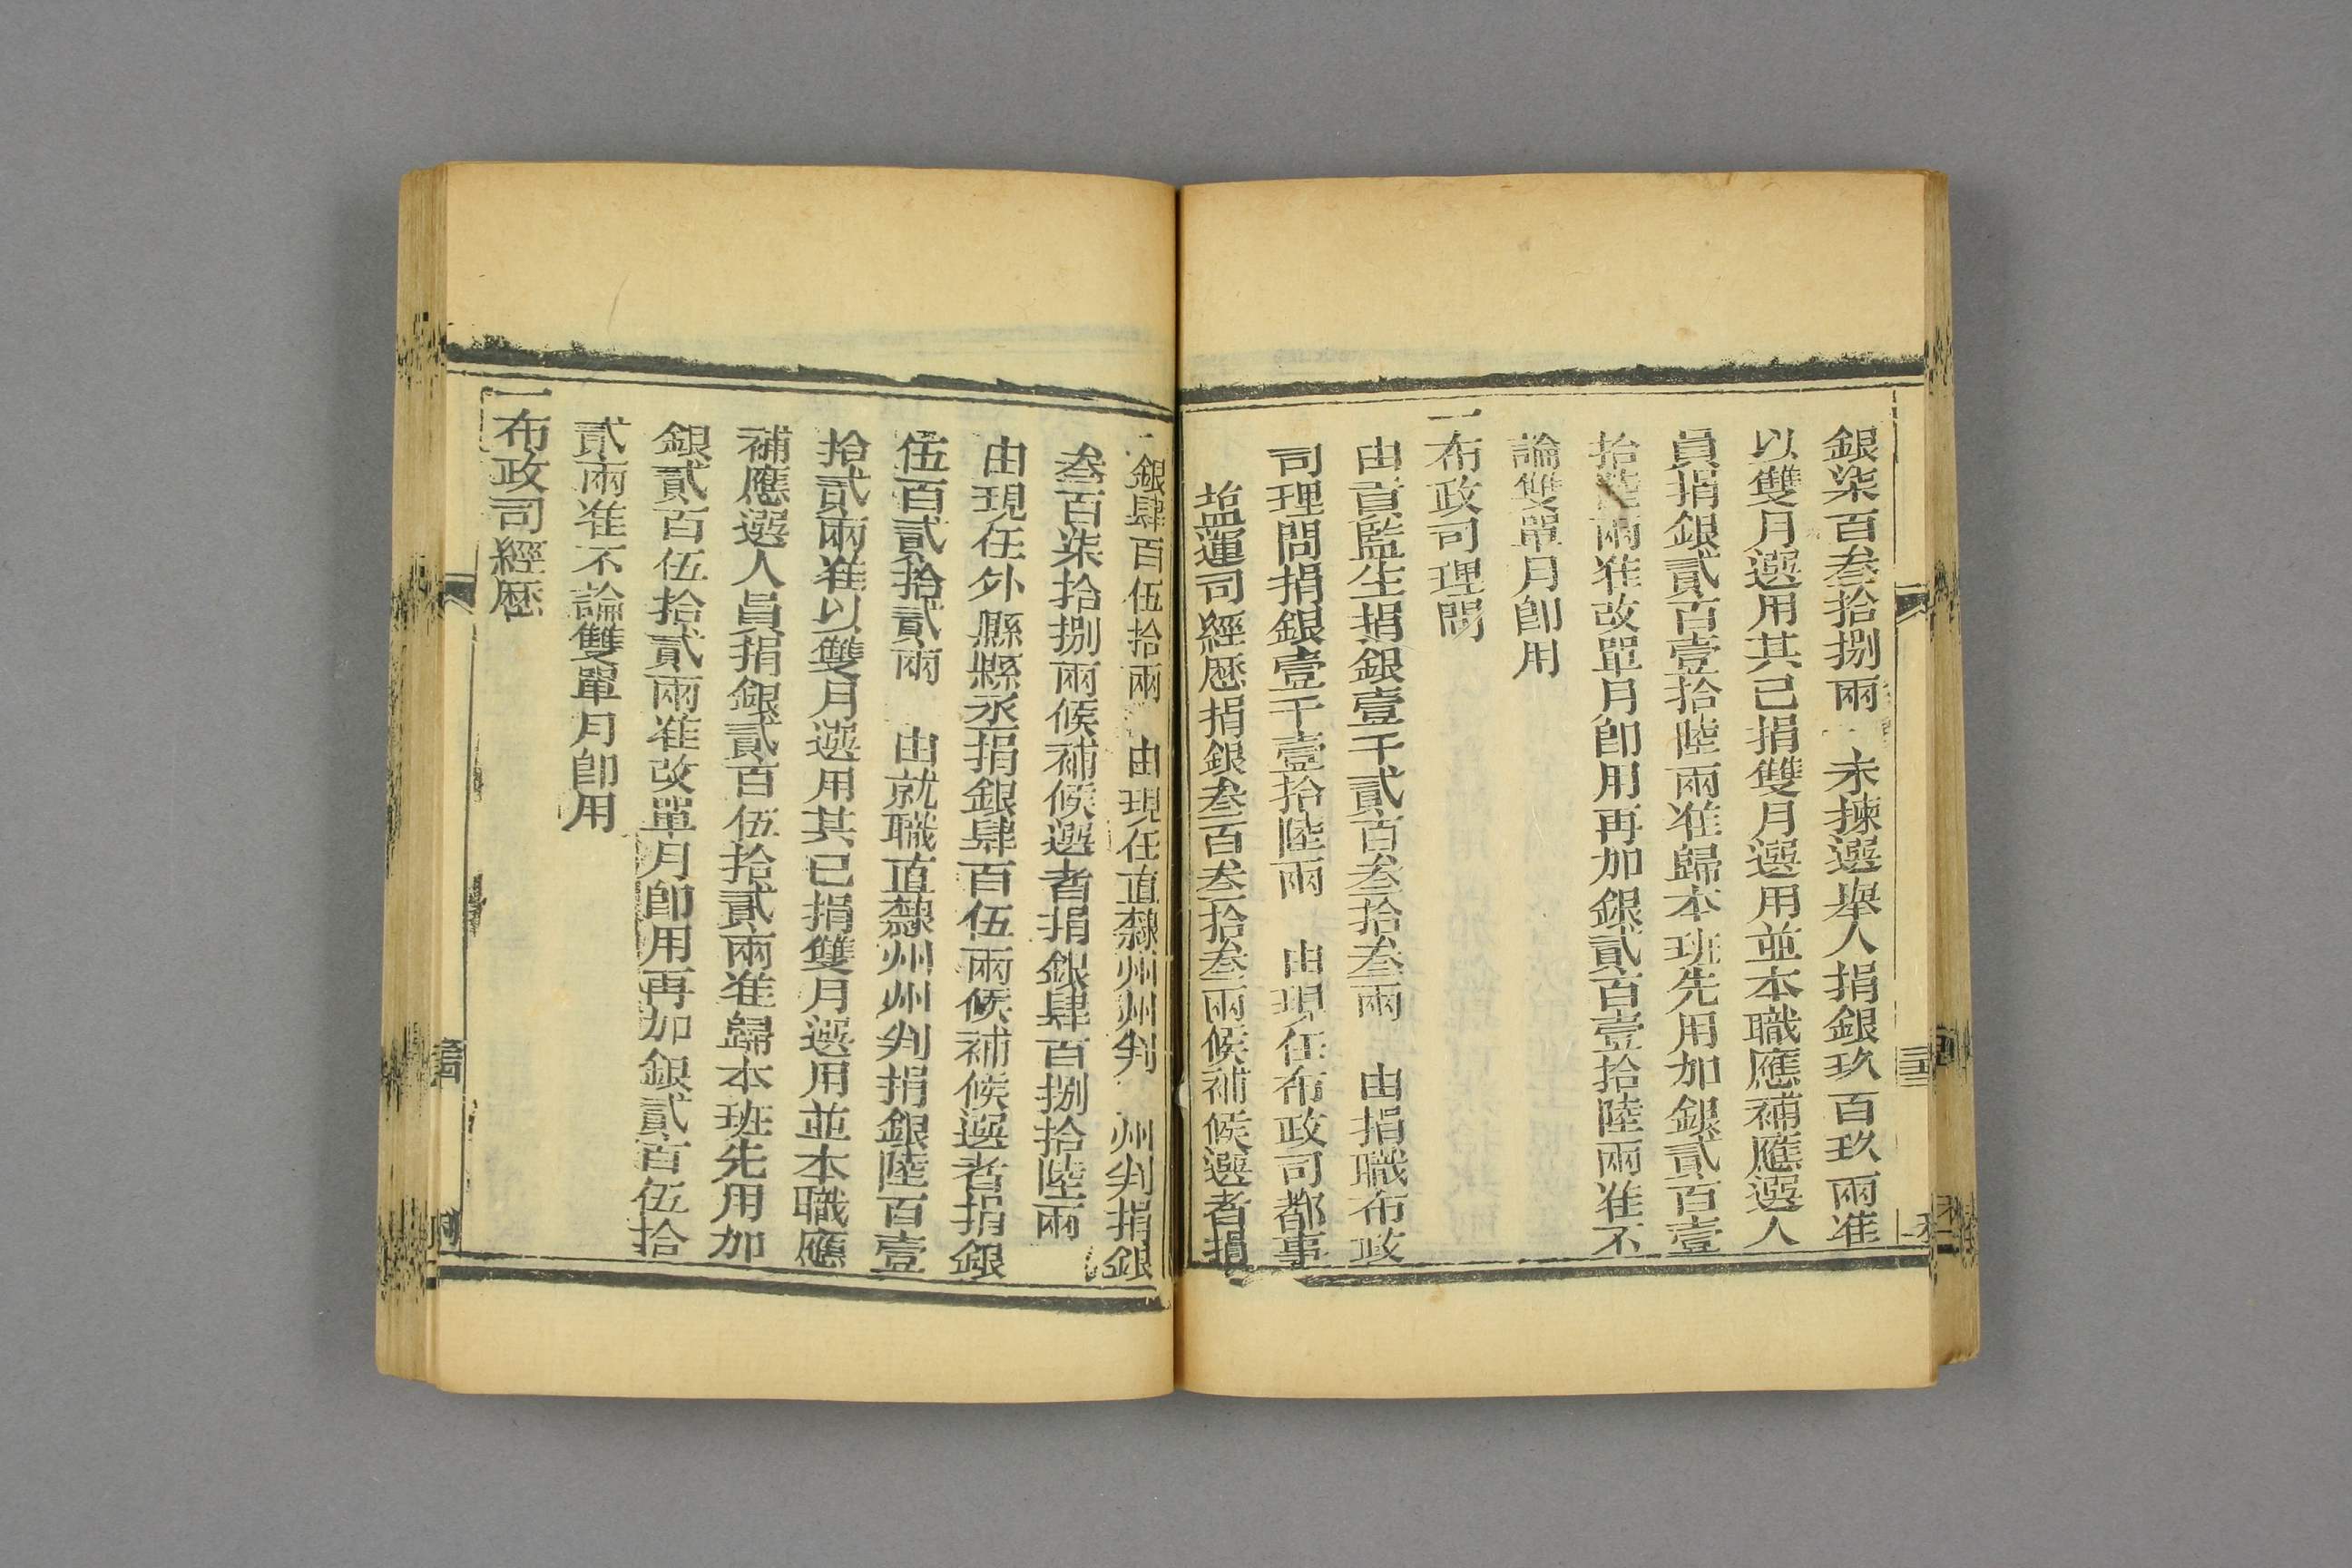 銀柒百叁拾捌兩 未揀選舉人捐銀玖百玖兩准
以雙月選用其已捐雙月選用並本職應補應選人
員捐銀貳百壹拾陸兩准歸本班先用加銀貳百壹
拾陸兩准改單月卽用再加銀貳百壹拾陸兩准不
論雙單月卽用
一布政司理問
由貢監生捐銀壹千貳百叁拾叁兩 由捐職布政
司理問捐銀壹千壹拾陸兩 由現任布政司都事
塩運司經歷捐銀叁百叁拾叁兩候補候選者捐
銀肆百伍拾兩 由現任直隸州州判 州判捐銀
叁百柒拾捌兩候補候選者捐銀肆百捌拾陸兩
由現任外縣縣丞捐銀肆百伍兩候補候選者捐銀
伍百貳拾貳兩 由就職直隸州州判捐銀陸百壹
拾貳兩准以雙月選用其已捐雙月選用並本職應
補應選人員捐銀貳百伍拾貳兩准歸本班先用加
銀貳百伍拾貳兩准改單月卽用再加銀貳百伍拾
貳兩准不論雙單月卽用
一布政司經歷